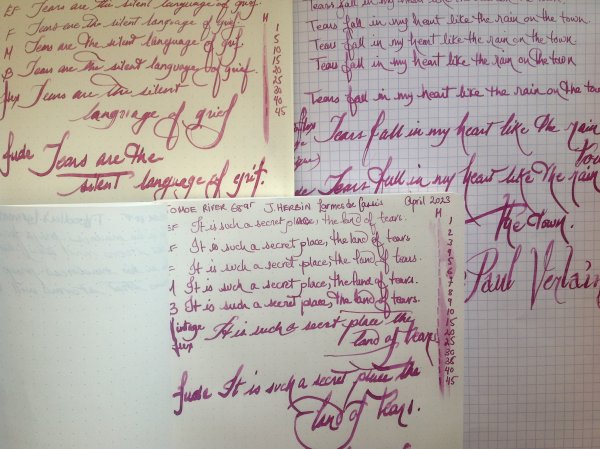 EF Tears are the silent language of grief.
F Tears are the silent language of grief.
M Tears are the silent language of grief.
B Tears are the silent language of grief.
flex Tears are the silent
language of grief
fude Tears are the
silent language of grief.
M
1
5
10
15
20
25
30
40
45
Tears fall in my heart like the rain on the town.
Tears fall in my heart like the rain on the town.
Tears fall in my heart like the rain on the town
Tears fall in my heart like the rain on the town
Tears fall in my heart like the rain on the town
Tears fall in my heart like the rain
town
Tears fall in my heart like the rain
the town.
Paul Verlain
TOMOE RIVER 68gr J. HERBIN Larmes de Cassis April 2023
EF It is such a secret place, the land of tears.
F It is such a secret place, the land of tears
F It is such a secret place, the land of tears.
M It is such a secret place, the land of tears.
B It is such a secret place, the land of tears.
vintage flex It is such a secret place the
land of tears
fude It is such a secret place the
land of tears.
M
1
2
3
4
5
6
7
8
9
10
15
20
25
30
35
40
45